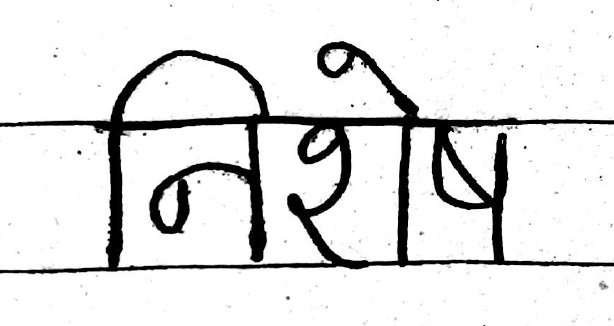 निशेष